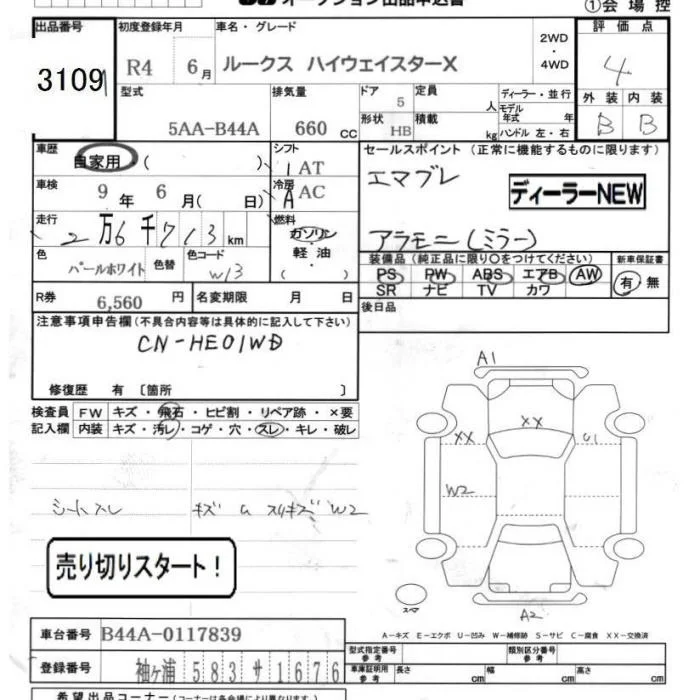 オークション出品申込書
①会場控
出品番号 初度登録年月 車名・グレード 評価点
3109 R4 6月 ルークス ハイウェイスターX 2WD・4WD 4
型式 排気量 ドア 定員 ディーラー・並行 外装 内装
5AA-B44A 660 CC 5 人 モデル年式 年 B B
形状 HB 積載 kg ハンドル 左・右
車歴 自家用 ( ) シフト 1AT セールスポイント (正常に機能するものに限ります)
車検 9年 6月( 日) 冷房 AAC エマブレ ディーラーNEW
走行 2万6千713km 燃料 ガソリン・軽油・ アラモニ(ミラー)
色 パールホワイト 色替 色コード W13
装備品 (純正品に限り○をつけてください) 新車保証書
PS PW ABS エアB AW 有・無
SR ナビ TV カワ
R券 6,560円 名変期限 月 日 後日品
注意事項申告欄 (不具合内容等は具体的に記入して下さい)
CN-HE01WD
修復歴 有 〔箇所 〕
検査員記入欄 FW キズ・飛石・ヒビ割・リペア跡・×要
内装 キズ・汚レ・コゲ・穴・スレ・キレ・破レ
シートスレ キズ U スリキズ W2
売り切りスタート！
A1
XX XX U1
W2
スペア A2
A－キズ E－エクボ U－凹み W－補修跡 S－サビ C－腐食 XX－交換済
車台番号 B44A-0117839
登録番号 袖ヶ浦 583 サ 1676
型式指定番号 参考 類別区分番号 参考
車庫証明用 参考 長さ cm 幅 cm 高さ cm
希望出品コーナー (コーナーは各会場により異なります)